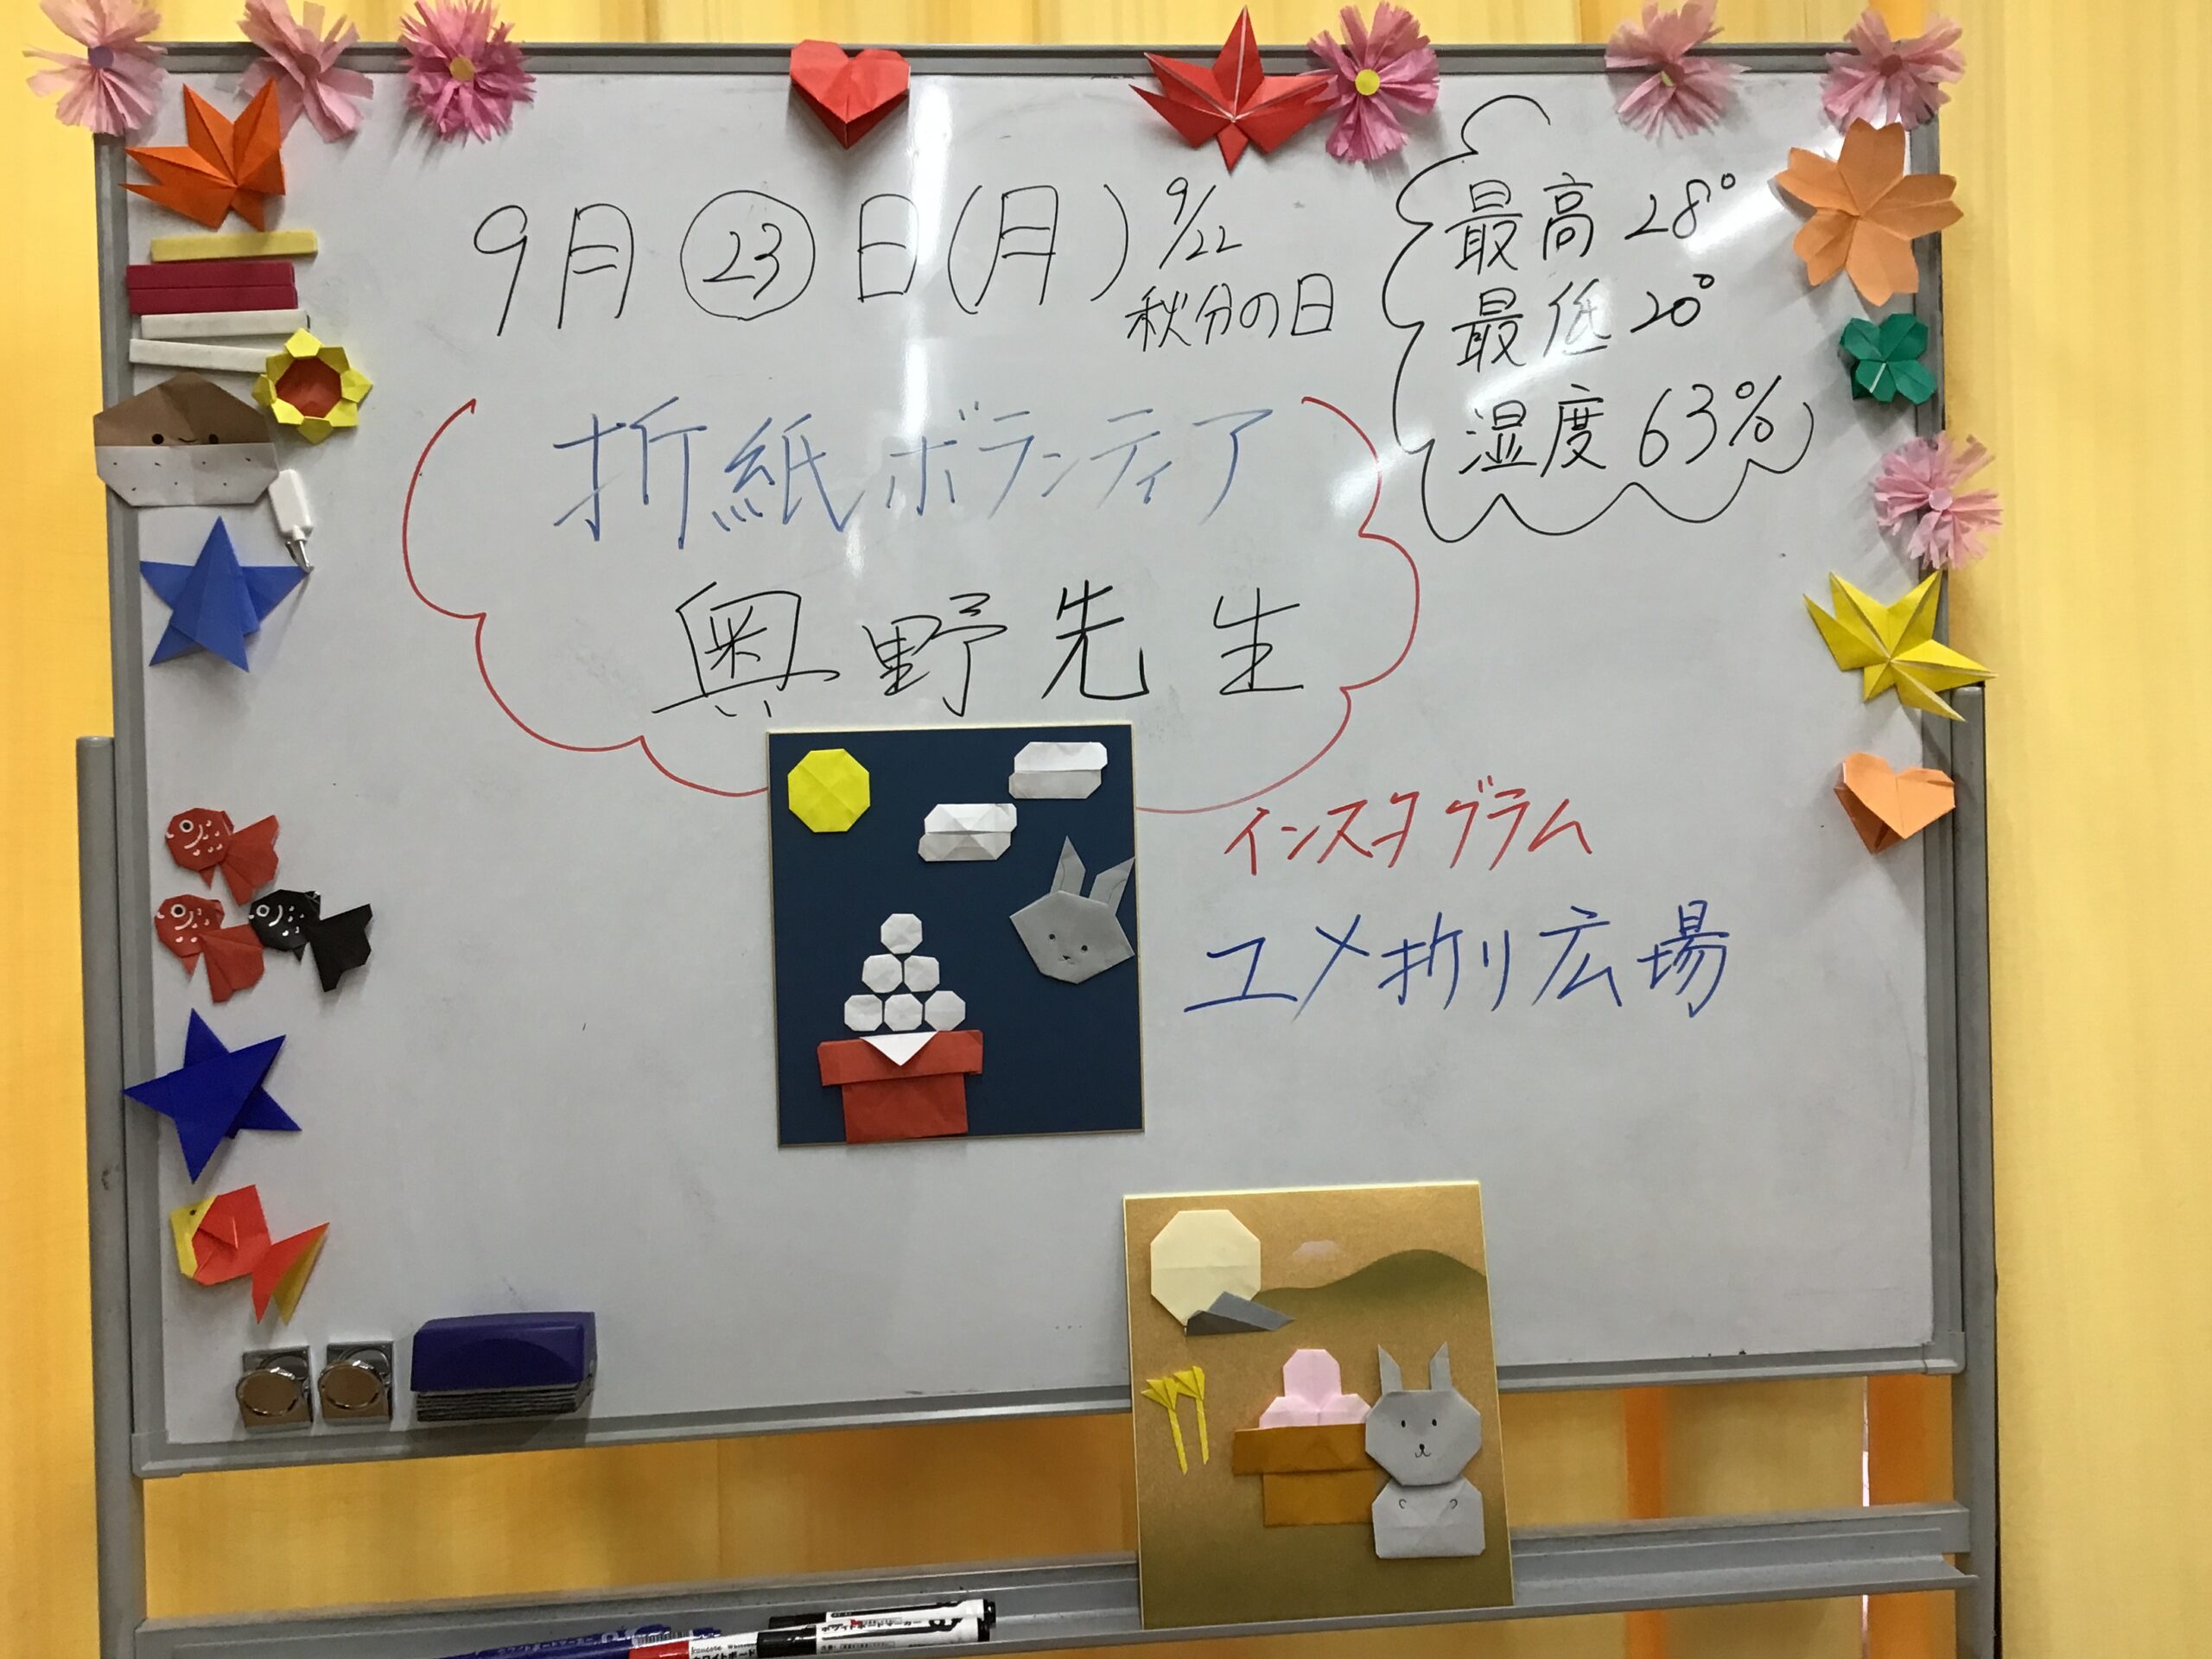 9月㉓日(月)
9/22
秋分の日
最高 28°
最低 20°
湿度 63%
折紙ボランティア
奥野先生
インスタグラム
ユメ折り広場
ホワイトボードマーカー